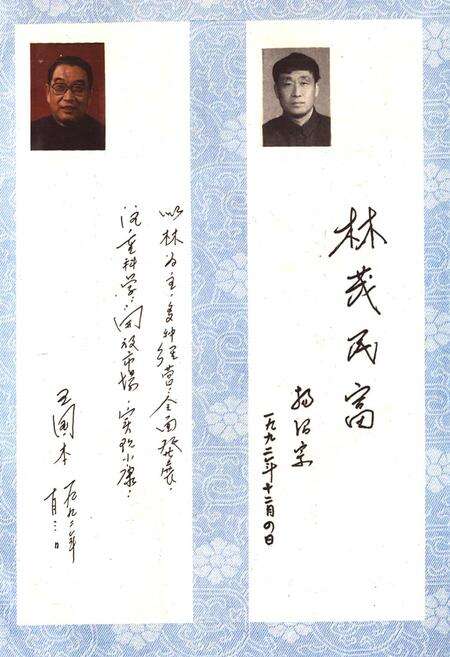 林茂民富
杨治宗
一九九二年十二月四日
以林为主，多种经营，全面发展，
注重科学，开放市场，实现小康。
王国本
一九九二年